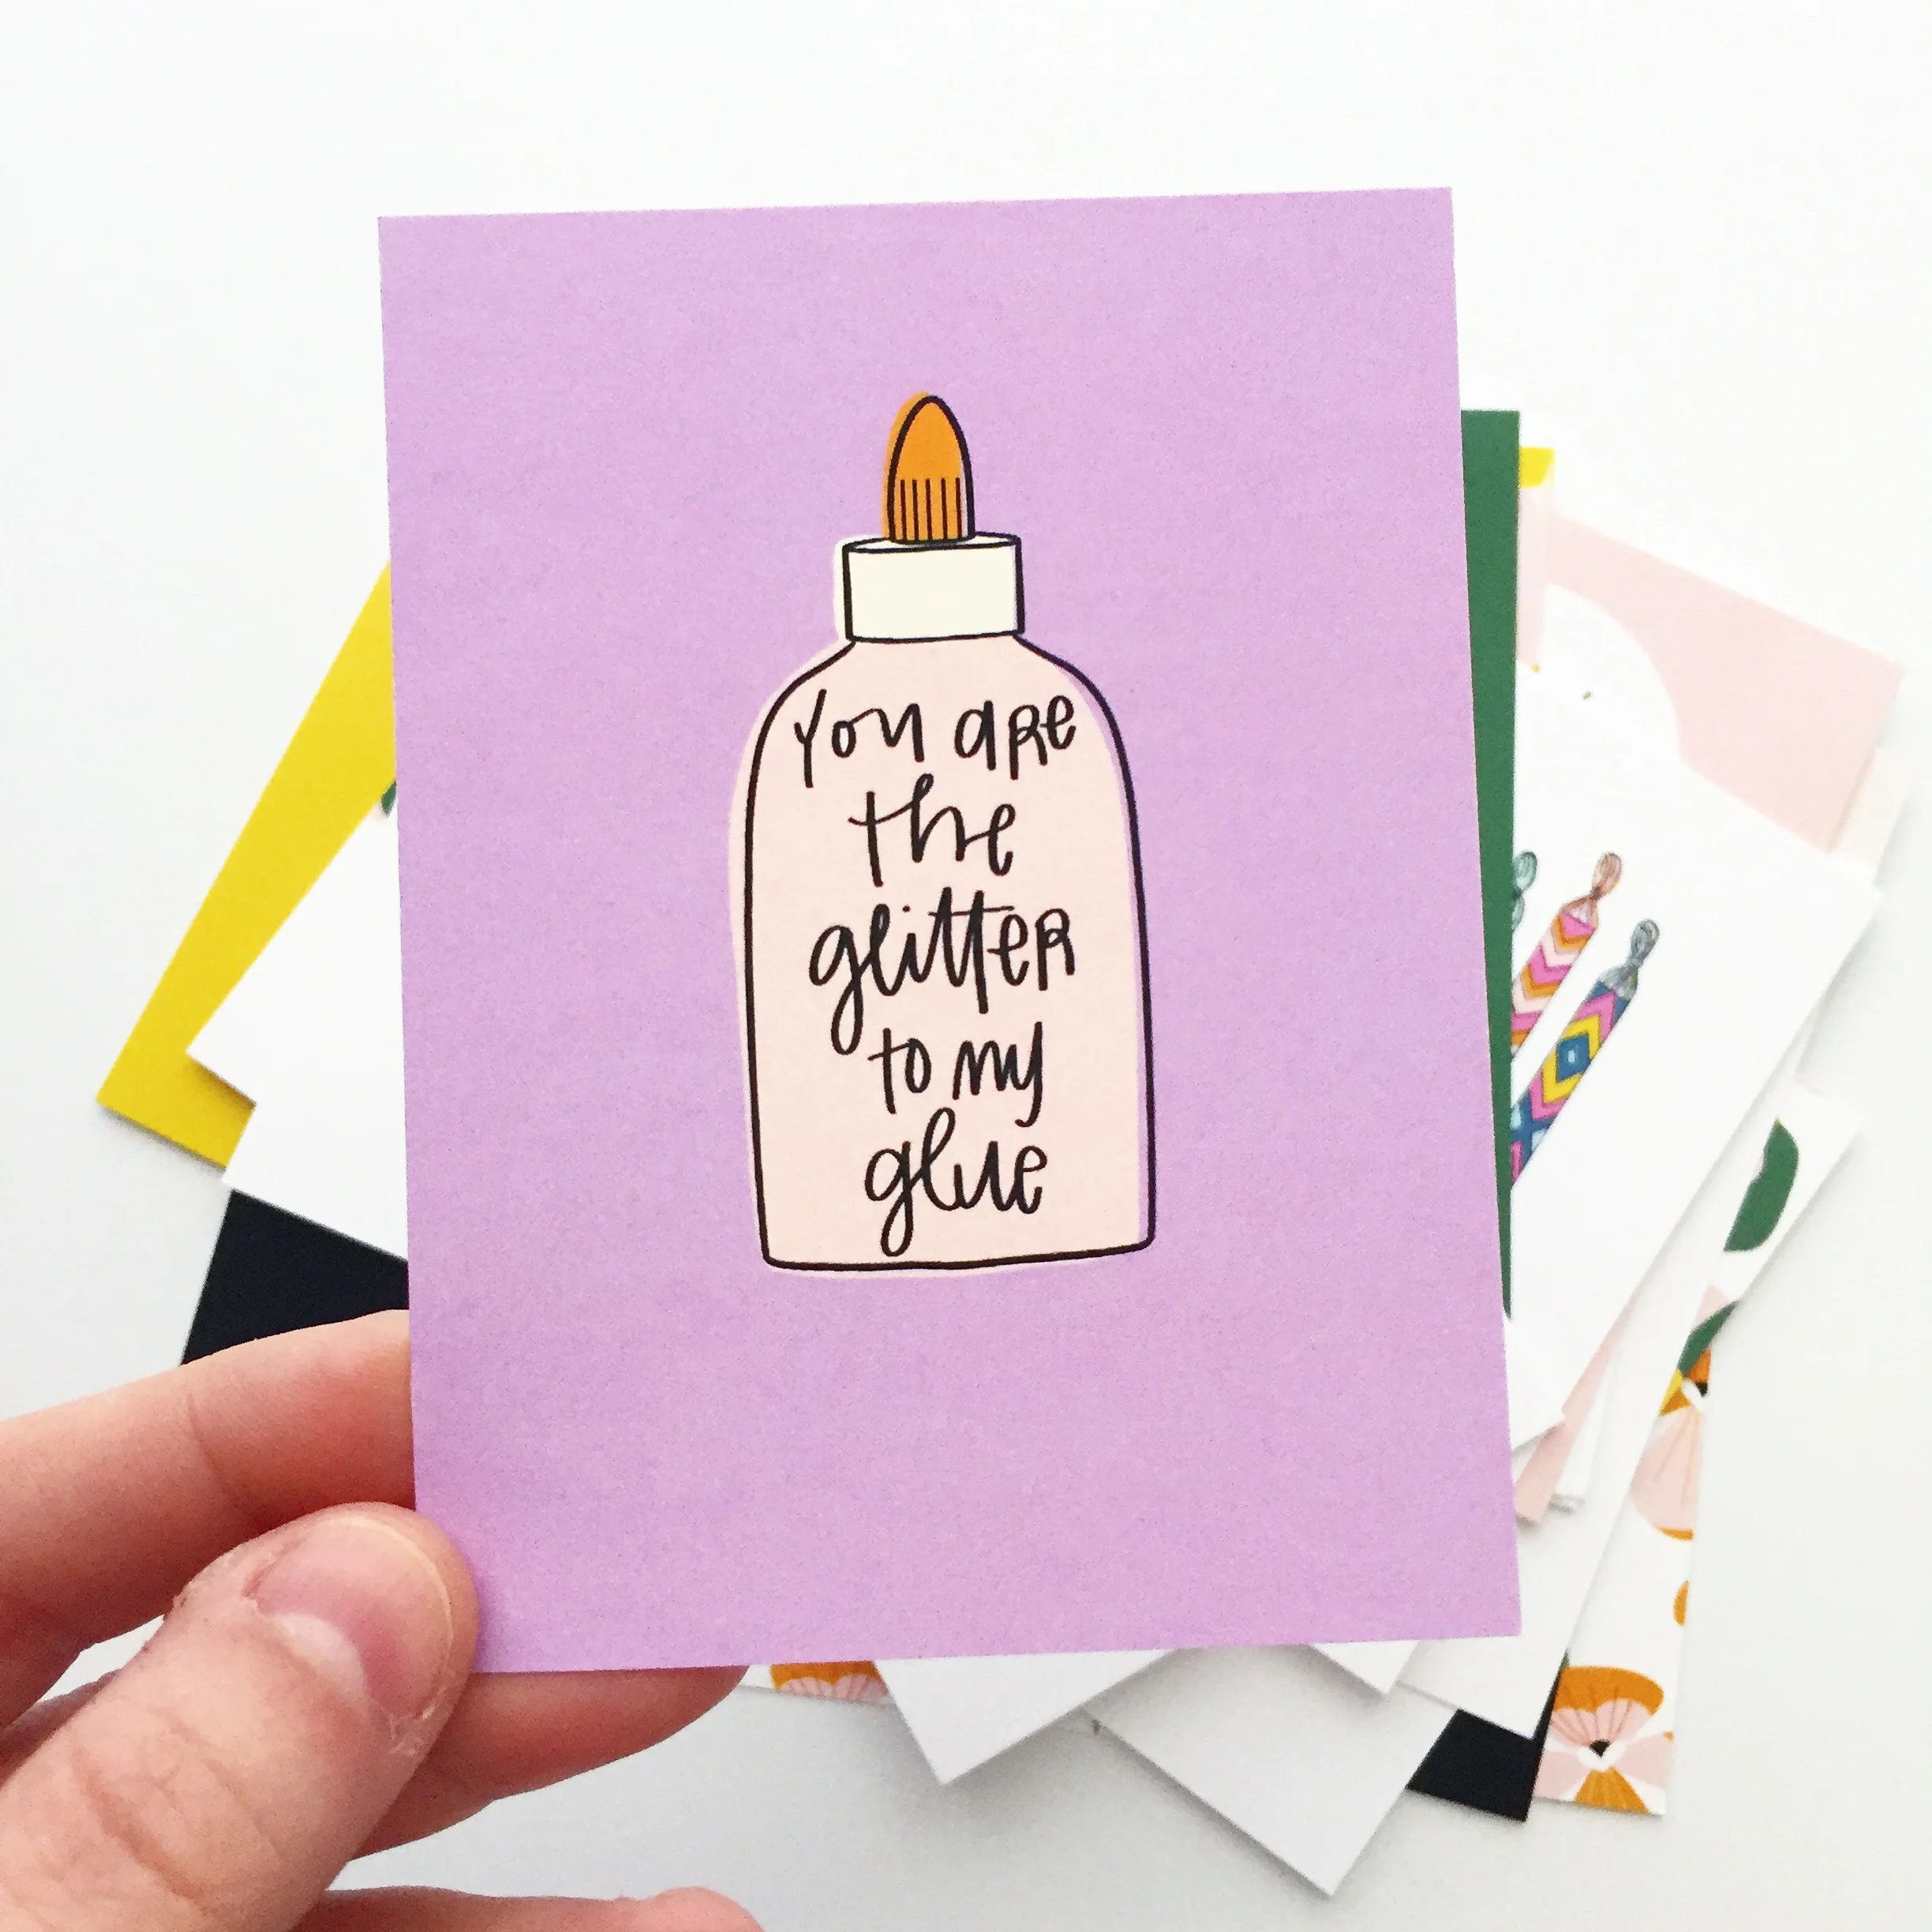 you are
the
glitter
to my
glue